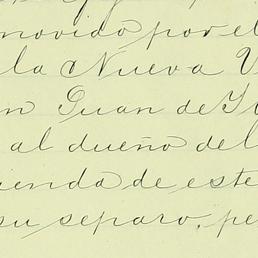 movido por el
la Nueva V
n Juan de
al dueño del
ienda de este
su separo, pe